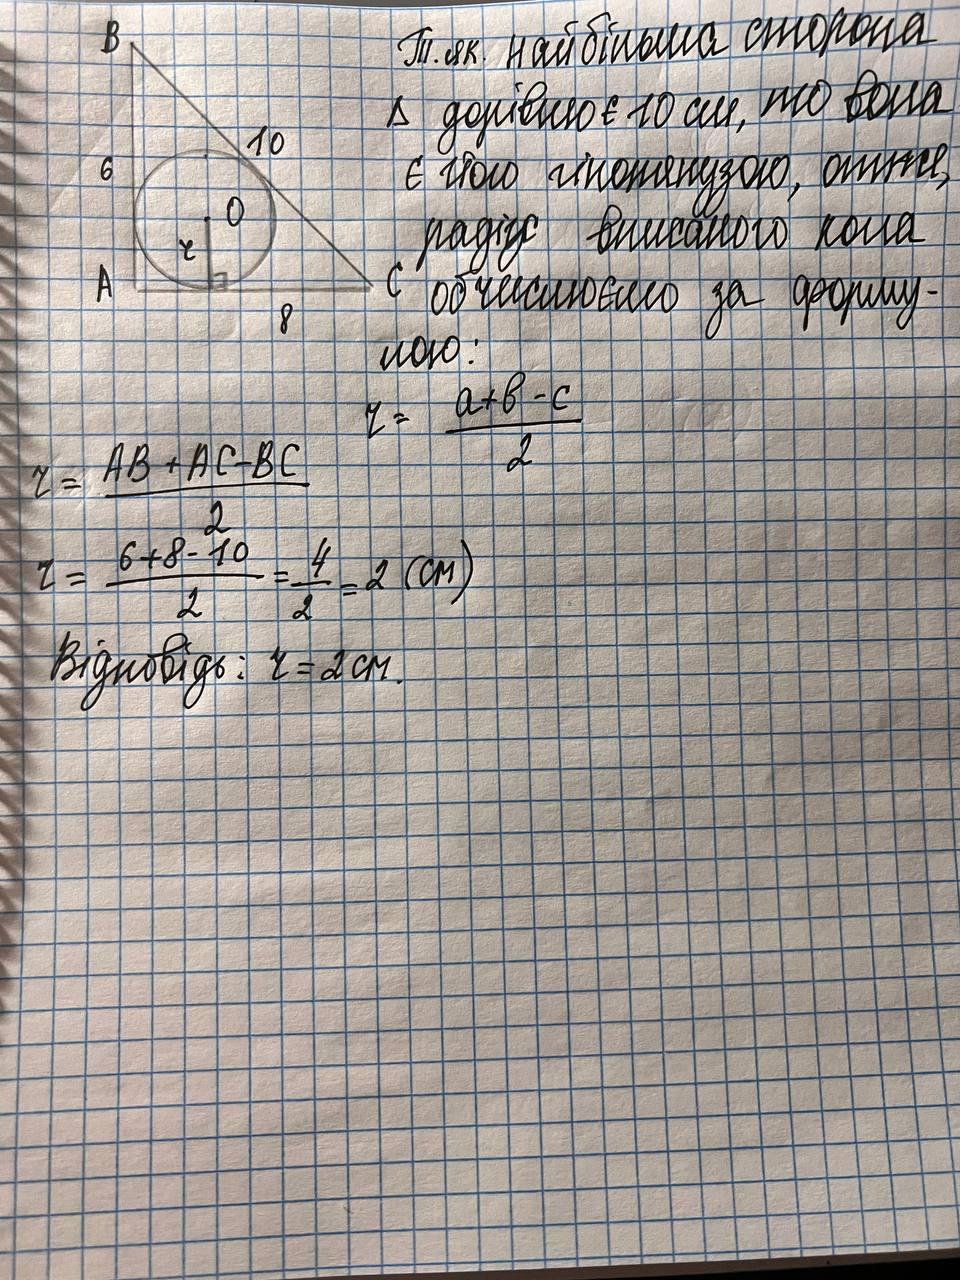 B
10
6
O
r
A
C
8
Т.як. найбільша сторона
Δ дорівнює 10 см, то вона
є його гіпотенузою, отже,
радіус вписаного кола
обчислюємо за форму-
лою:
r = (a+b-c)/2
r = (AB+AC-BC)/2
r = (6+8-10)/2 = 4/2 = 2 (см)
Відповідь: r = 2 см.